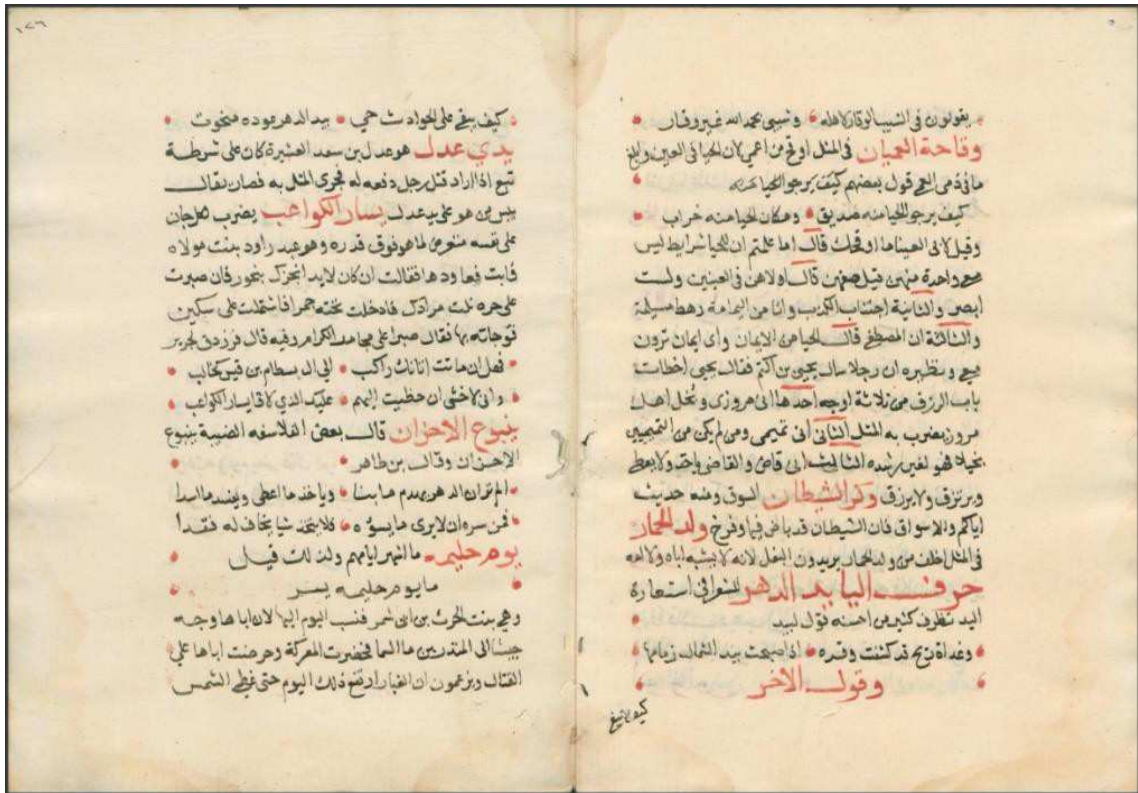 يقولون في الشيب الوقار لاهله وشيبي بحمد الله غير وقار
وقاحة العميان في المثل اوقح من اعمي لان الحيا في العين وابلغ
ما في ذم العمي قول بعضهم كيف يرجو الحيا منه
كيف يرجو الحيا منه صديق ومكان الحيا منه خراب
وقيل لابي العينا ما اوقحك قال اما علمتم ان للحيا شرايط ليس
معي واحدة منهن قيل صفهن قال اولاهن في العينين ولست
ابصر والثانية اجتناب الكذب وانا من اليمامة رهط مسيلمة
والثالثة ان المصطفي قال الحيا من الايمان واي ايمان ترون
معي ونظيره ان رجلا سال يحيي بن اكثم فقال يحيي اخطات
باب الرزق من ثلاثة اوجه احدها اني مروزي وبخل اهل
مرو يضرب به المثل الثاني اني تميمي ومن لم يكن من التميميين
بخيلا فهو لغير رشده الثالث اني قاض والقاضي ياخذ ولا يعطي
ويرتزق ولا يرزق وكر الشيطان السوق ومنه حديث
اياكم والاسواق فان الشيطان قد باض فيها وفرخ ولد الحمار
في المثل اخلف من ولد الحمار يريدون البغل لانه لا يشبه اباه ولا امه
حرف اليا يد الدهر للشعرا في استعارة
اليد تظرف كثير من احسنه قول لبيد
وغداة ريح قد كشفت وقره اذ اصبحت بيد الشمال زمامها
وقول الاخر
كيف يبقي
١٧٦
كيف يبقي علي الحوادث حي بيد الدهر عوده منحوت
يدي عدل هو عدل بن سعد العشيرة كان علي شرطة
تبع اذا اراد قتل رجل دفعه له فجري المثل به فصار يقال
ييس من هو علي يد عدل يسار الكواعب يضرب لكل جان
علي نفسه متعرض لما هو فوق قدره وهو عبد راود بنت مولاه
فابت فعاودها فقالت ان كان لابد ابخرك ببخور فان صبرت
علي حره نلت مرادك فادخلت تحته جمرا فاشتملت علي سكين
توجاته بها فقال صبرا علي مجامر الكرام وفيه قال فرزدق لجرير
فهل ان ماتت اتانك راكب الي ال بسطام بن قيس بخاطب
واني لاخشي ان خطبت اليهم عليك الذي لاقا يسار الكواعب
ينبوع الاحزان قال بعض الفلاسفه الضيبة ينبوع
الاحزان وقال بن طاهر
الم تر ان الدهر يهدم ما بنا وياخذ ما اعطي ويفسد ما اسدا
فمن سره ان لا يري ما يسؤه فلا يتخذ شيا يخاف له فقدا
يوم حليمه ما اشهر ايامهم ولذلك قيل
ما يوم حليمه بسر
وهي بنت الحرث بن ابي شمر فنسب اليوم اليها لان اباها وجه
جيشا الي المنذر بن ما السما فحضرت المعركة وحرضت اباها علي
القتال ويزعمون ان الغبار ارتفع ذلك اليوم حتي غطي الشمس